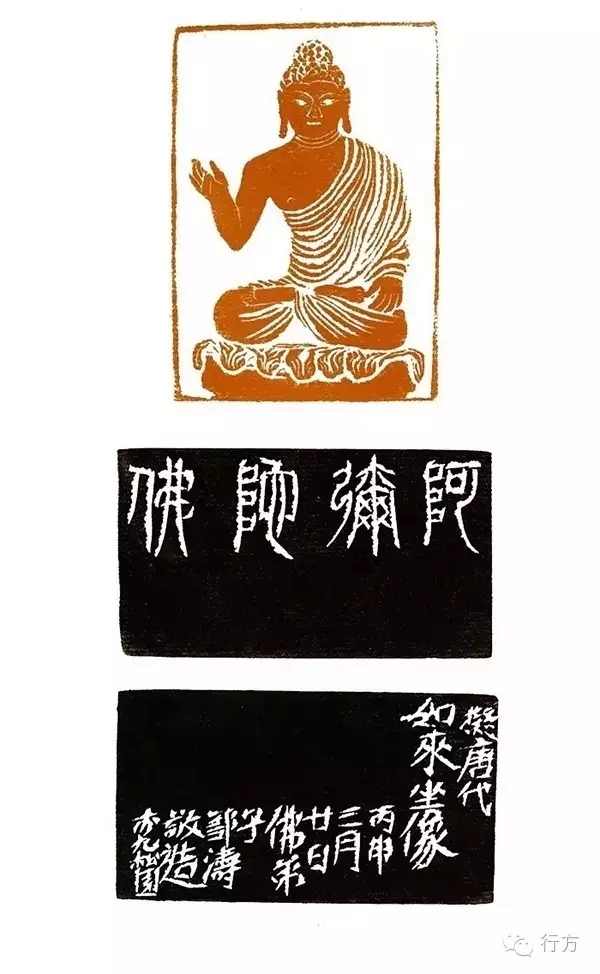 阿彌陀佛
擬唐代
如來坐像
丙申
三月
廿日
佛弟
子
鄒濤
敬造
九松園
行方